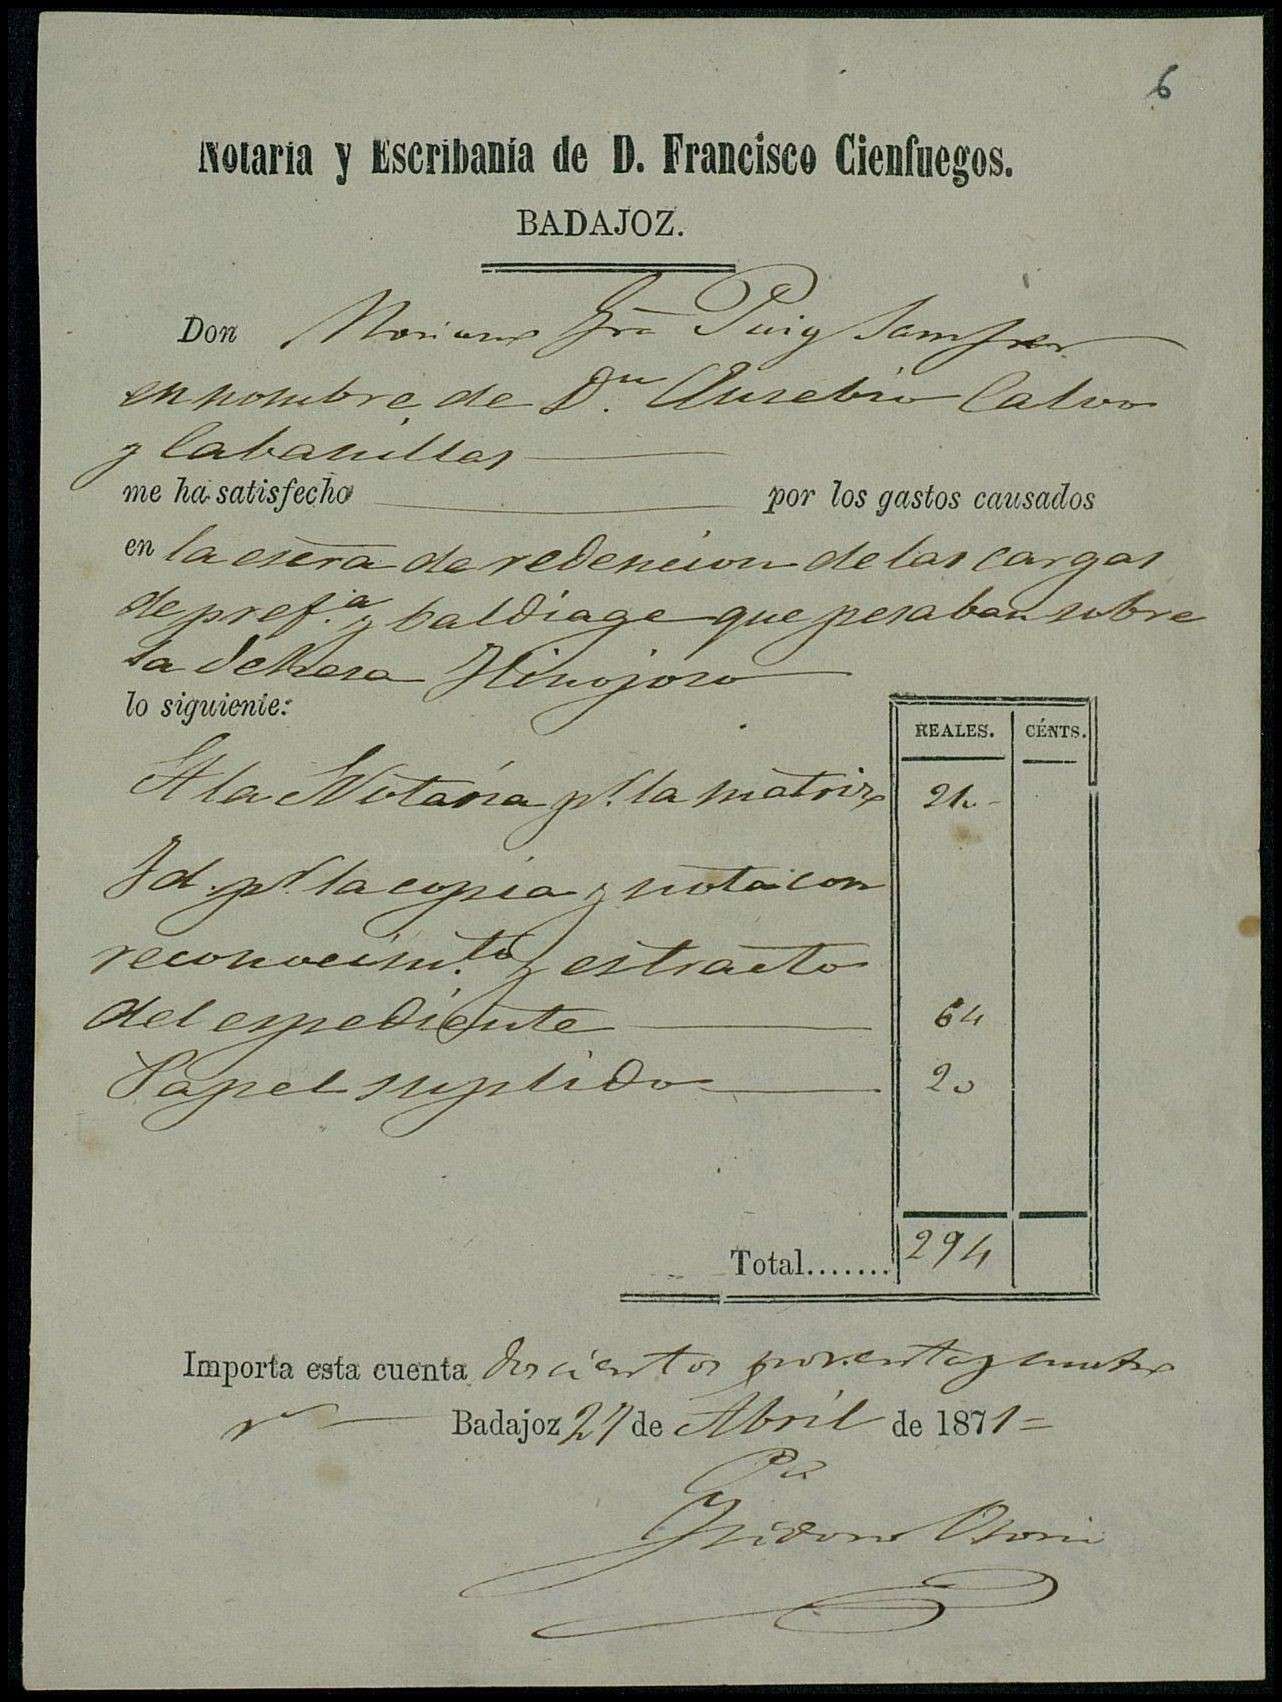 6
Notaría y Escribanía de D. Francisco Cienfuegos.
BADAJOZ.
Don Mariano Gra Puig Samper
en nombre de Dn Eusebio Calvo
y Cabanillas
me ha satisfecho por los gastos causados
en la escra de redencion de las cargas
de pref.a y baldiage que pesaban sobre
la dehesa Hinojoso
lo siguiente:
REALES. CÉNTS.
A la Notaria pr. la matriz 210
Id. pr la copia y nota con
reconocim.to y estracto
del espediente 64
Papel suplido 20
Total....... 294
Importa esta cuenta doscientos noventa y cuatro
rs Badajoz 27 de Abril de 1871=
Isidoro Osorio